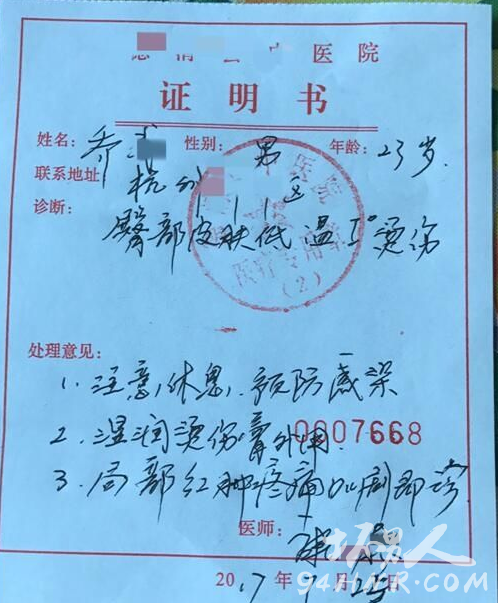 医院
证明书
姓名：乔 性别：男 年龄：23岁.
联系地址 杭州 区
诊断：
臀部皮肤低温I°烫伤
医院
医疗专用章
(2)
处理意见：
1. 注意休息.预防感染
2. 湿润烫伤膏外用.
0007668
3. 局部红肿疼痛加剧即诊
医师：
2017年 月25日
坏男人
94HNR.COM